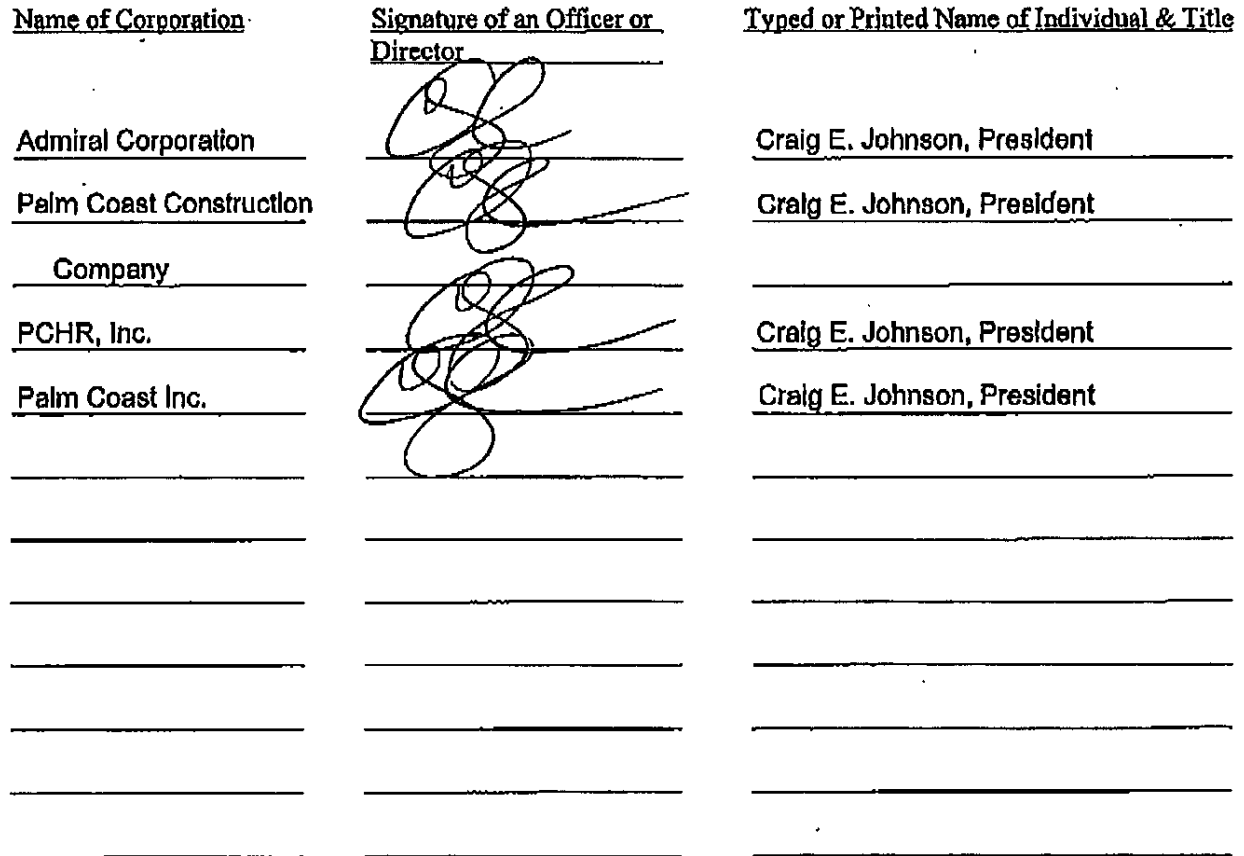 Name of Corporation Signature of an Officer or Typed or Printed Name of Individual & Title
Director
Admiral Corporation Craig E. Johnson, President
Palm Coast Construction Craig E. Johnson, President
Company
PCHR, Inc. Craig E. Johnson, President
Palm Coast Inc. Craig E. Johnson, President